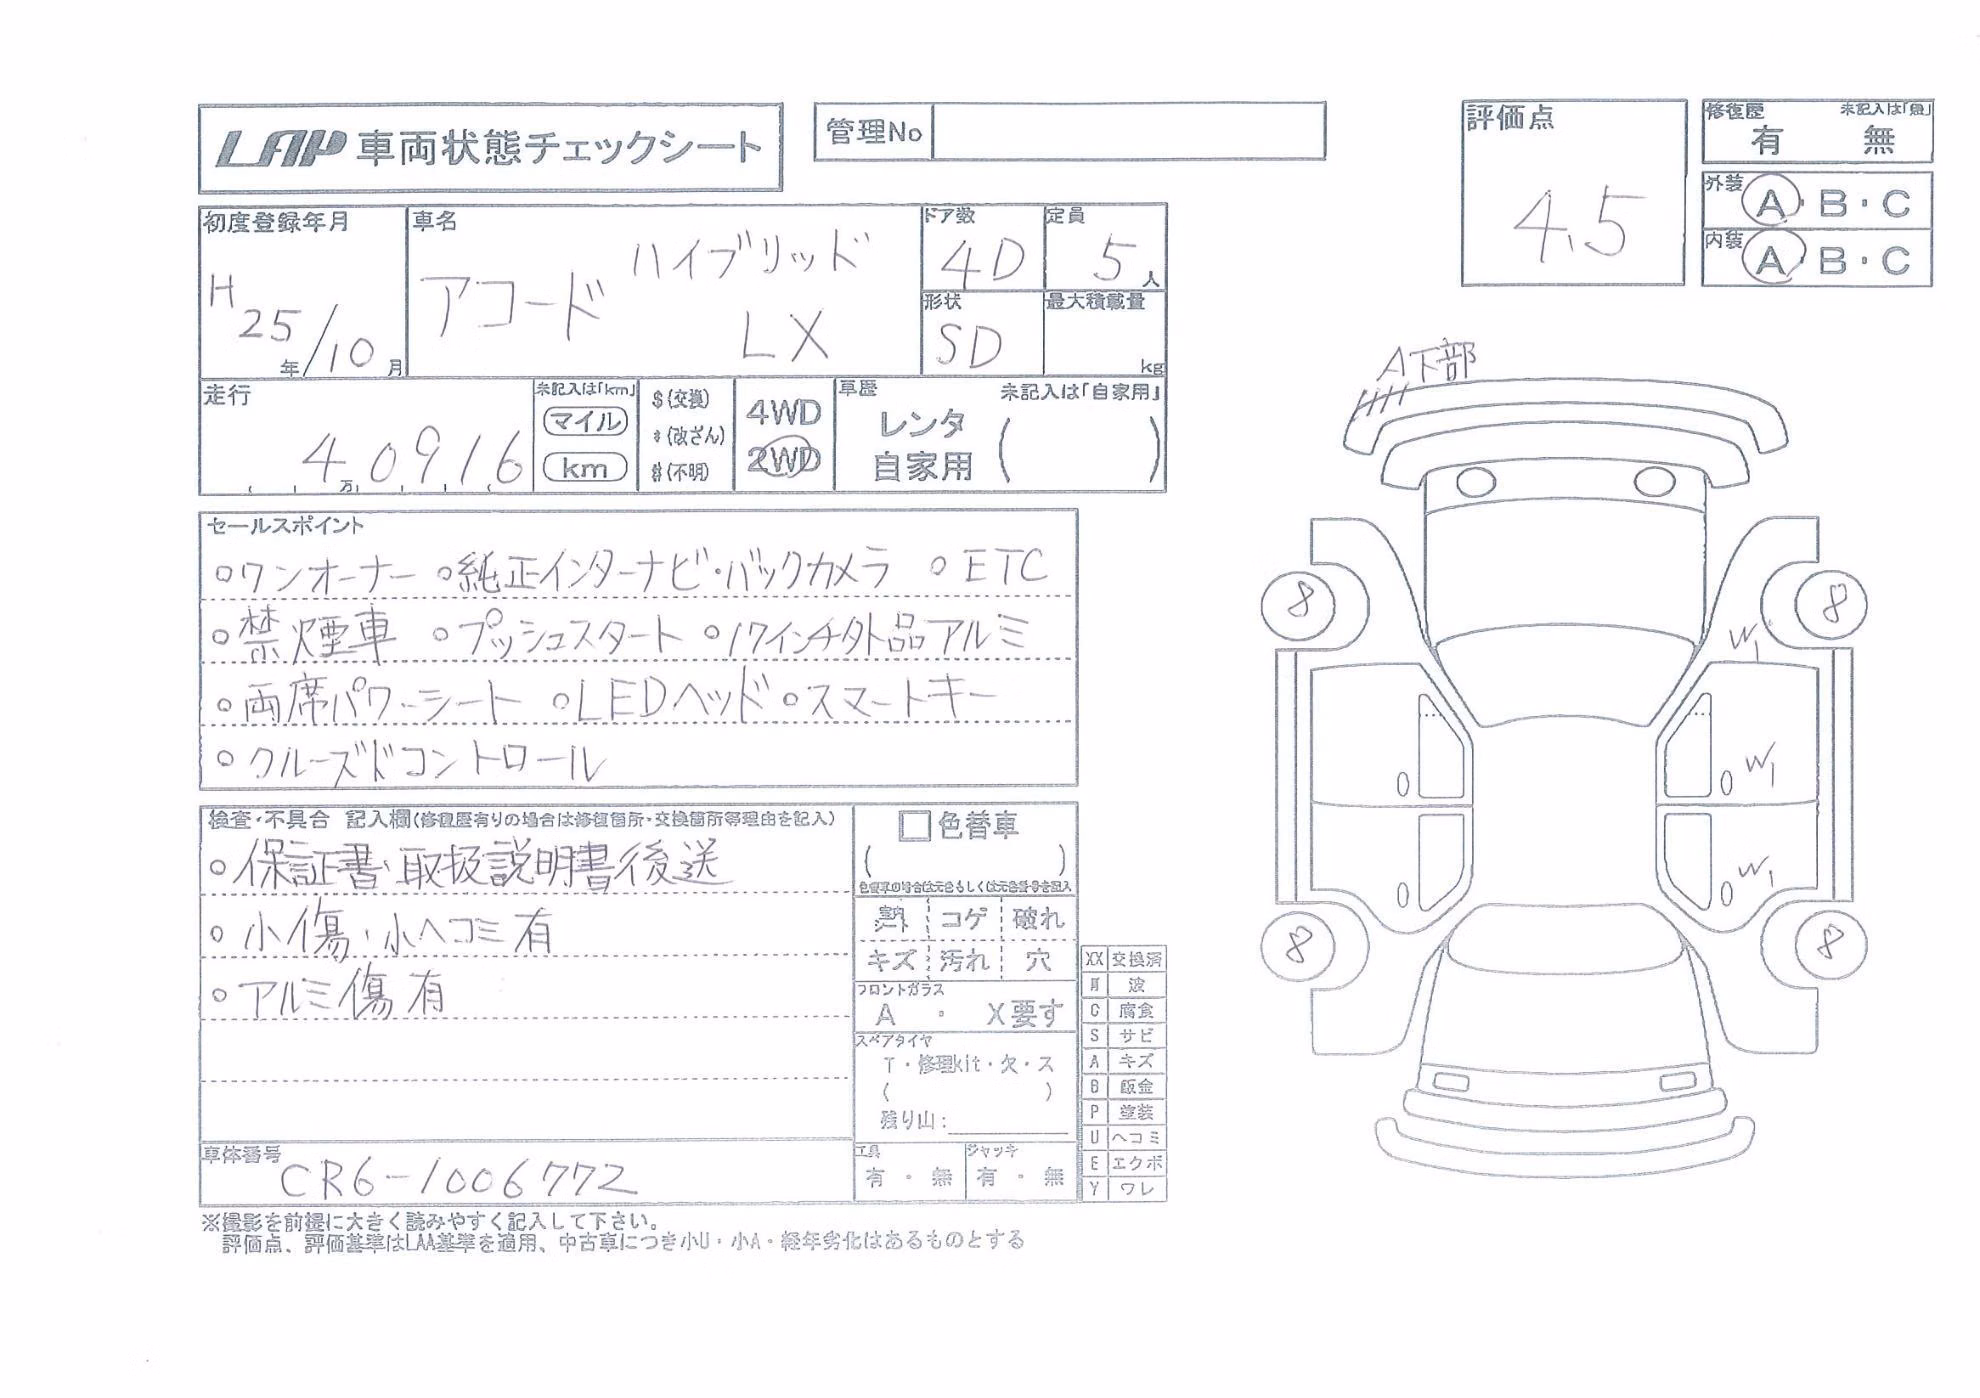 LAP 車両状態チェックシート
管理No
評価点
4.5
修復歴 未記入は「無」
有 無
外装 A・B・C
内装 A・B・C
初度登録年月
H25年/10月
車名
アコード ハイブリッド
LX
ドア数
4D
定員
5人
形状
SD
最大積載量
kg
走行
40916
万
未記入は「km」
マイル
km
$(交換)
*(改ざん)
#(不明)
4WD
2WD
車歴 未記入は「自家用」
レンタ
自家用
( )
セールスポイント
○ワンオーナー ○純正インターナビ・バックカメラ ○ETC
○禁煙車 ○プッシュスタート ○17インチ外品アルミ
○両席パワーシート ○LEDヘッド ○スマートキー
○クルーズドコントロール
検査・不具合 記入欄(修復歴有りの場合は修復箇所・交換箇所等理由を記入)
○保証書・取扱説明書後送
○小傷・小ヘコミ有
○アルミ傷有
□色替車
( )
色替車の場合は元色もしくは元色番号を記入
コゲ 破れ
キズ 汚れ 穴
フロントガラス
A ・ X要す
スペアタイヤ
T・修理kit・欠・ス
( )
残り山:
工具
有・無
ジャッキ
有・無
XX 交換済
W 波
C 腐食
S サビ
A キズ
B 鈑金
P 塗装
U ヘコミ
E エクボ
Y ワレ
車体番号
CR6-1006772
※撮影を前提に大きく読みやすく記入して下さい。
評価点、評価基準はLAA基準を適用、中古車につき小U・小A・経年劣化はあるものとする
A下部
8
8
W1
W1
W1
8
8